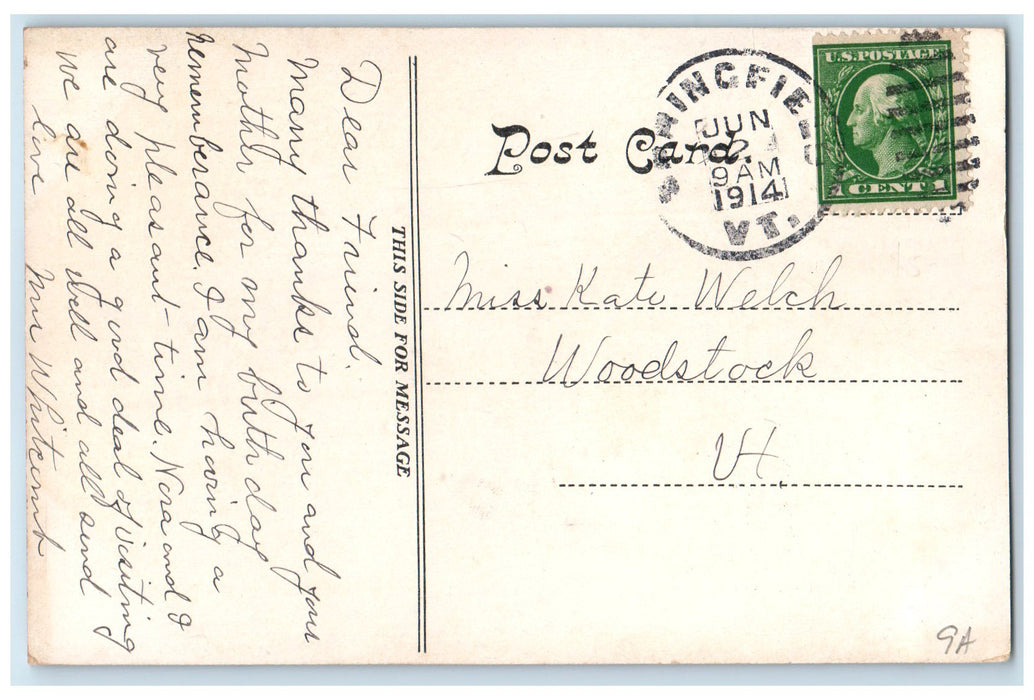 Dear Friend.
Many thanks to you and your
Mother for my birth day
rememberance. I am having a
very pleasant time. Nora and I
are doing a good deal of visiting
we are all well and all send
love
Mrs Whitcomb
THIS SIDE FOR MESSAGE
Post Card.
SPRINGFIELD
JUN
2
9 AM
1914
VT.
U.S. POSTAGE
1 CENT 1
Miss Kate Welch
Woodstock
Vt.
9A